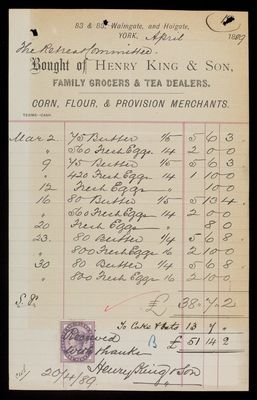 83 & 85, Walmgate, and Holgate,
YORK, April 1889
The Retreat Committee.
Bought of HENRY KING & SON,
FAMILY GROCERS & TEA DEALERS.
CORN, FLOUR, & PROVISION MERCHANTS.
TERMS—CASH.
Mar 2. 75 Butter 1/5 5 6 3
" 560 Fresh Eggs 14 2 0 0
9 75 Butter 1/5 5 6 3
" 420 Fresh Eggs 14 1 10 0
12 Fresh Eggs " 10 0
16 80 Butter 1/5 5 13 4
" 560 Fresh Eggs 14 2 0 0
20 Fresh Eggs 8 0
23. 80 Butter 1/4 5 6 8
" 800 Fresh Eggs 16 2 10 0
30 80 Butter 1/4 5 6 8
800 Fresh Eggs 16 2 10 0
£ 38 - 7 - 2
To Cake & Oats 13 7 "
B £ 51 14 2
Received
with thanks
Henry King & Son
20/4/89